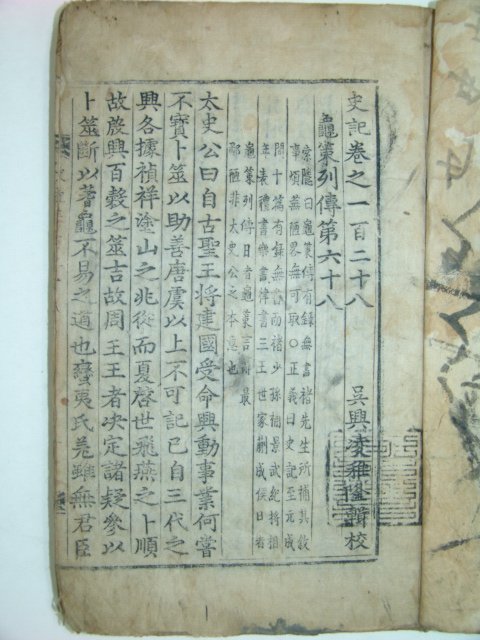 史記卷之一百二十八
吳興凌稚隆輯校
龜策列傳第六十八
索隱曰龜策傳有錄無書褚先生所補其敘
事煩蕪陋畧無可取○正義曰史記至元成
間十篇有錄無書而褚少孫補景武紀將相
年表禮書樂書律書三王世家蒯成侯日者
龜策列傳日者龜策言辭最
鄙陋非太史公之本意也
太史公曰自古聖王將建國受命興動事業何嘗
不寶卜筮以助善唐虞以上不可記已自三代之
興各據禎祥塗山之兆從而夏啓世飛燕之卜順
故殷興百穀之筮吉故周王王者決定諸疑參以
卜筮斷以蓍龜不易之道也蠻夷氐羌雖無君臣